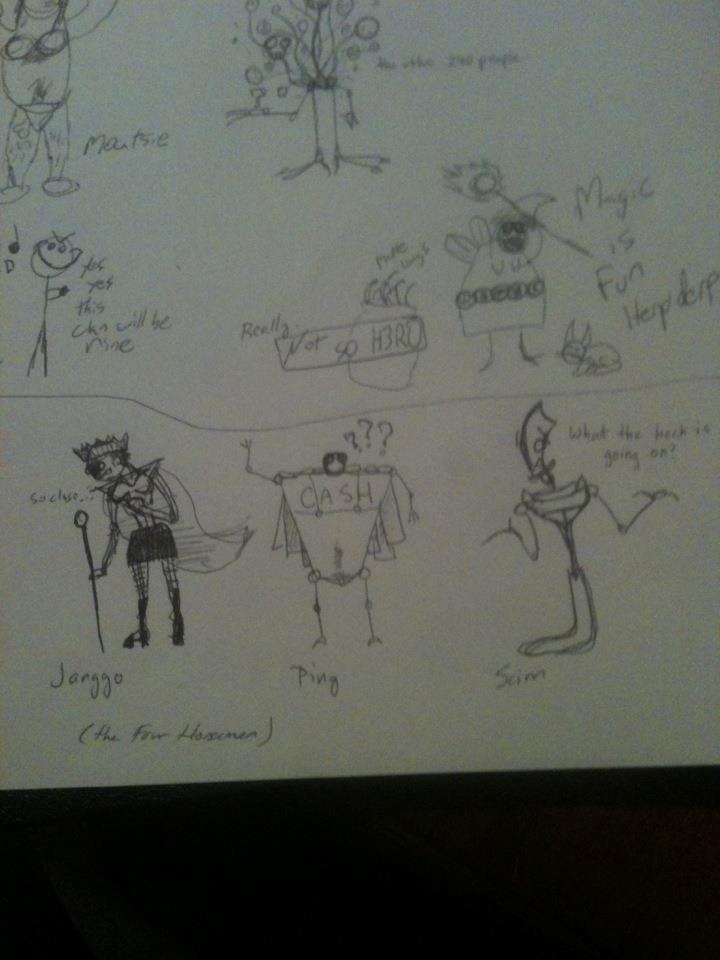 the other 240 people
Magic
is
Fun
Herp derp
D
yes
yes
this
clan will be
mine
more
Really
Not so H3RO
so close...
???
CASH
What the heck is
going on?
Janggo
Ping
Scim
(the Four Horsemen)